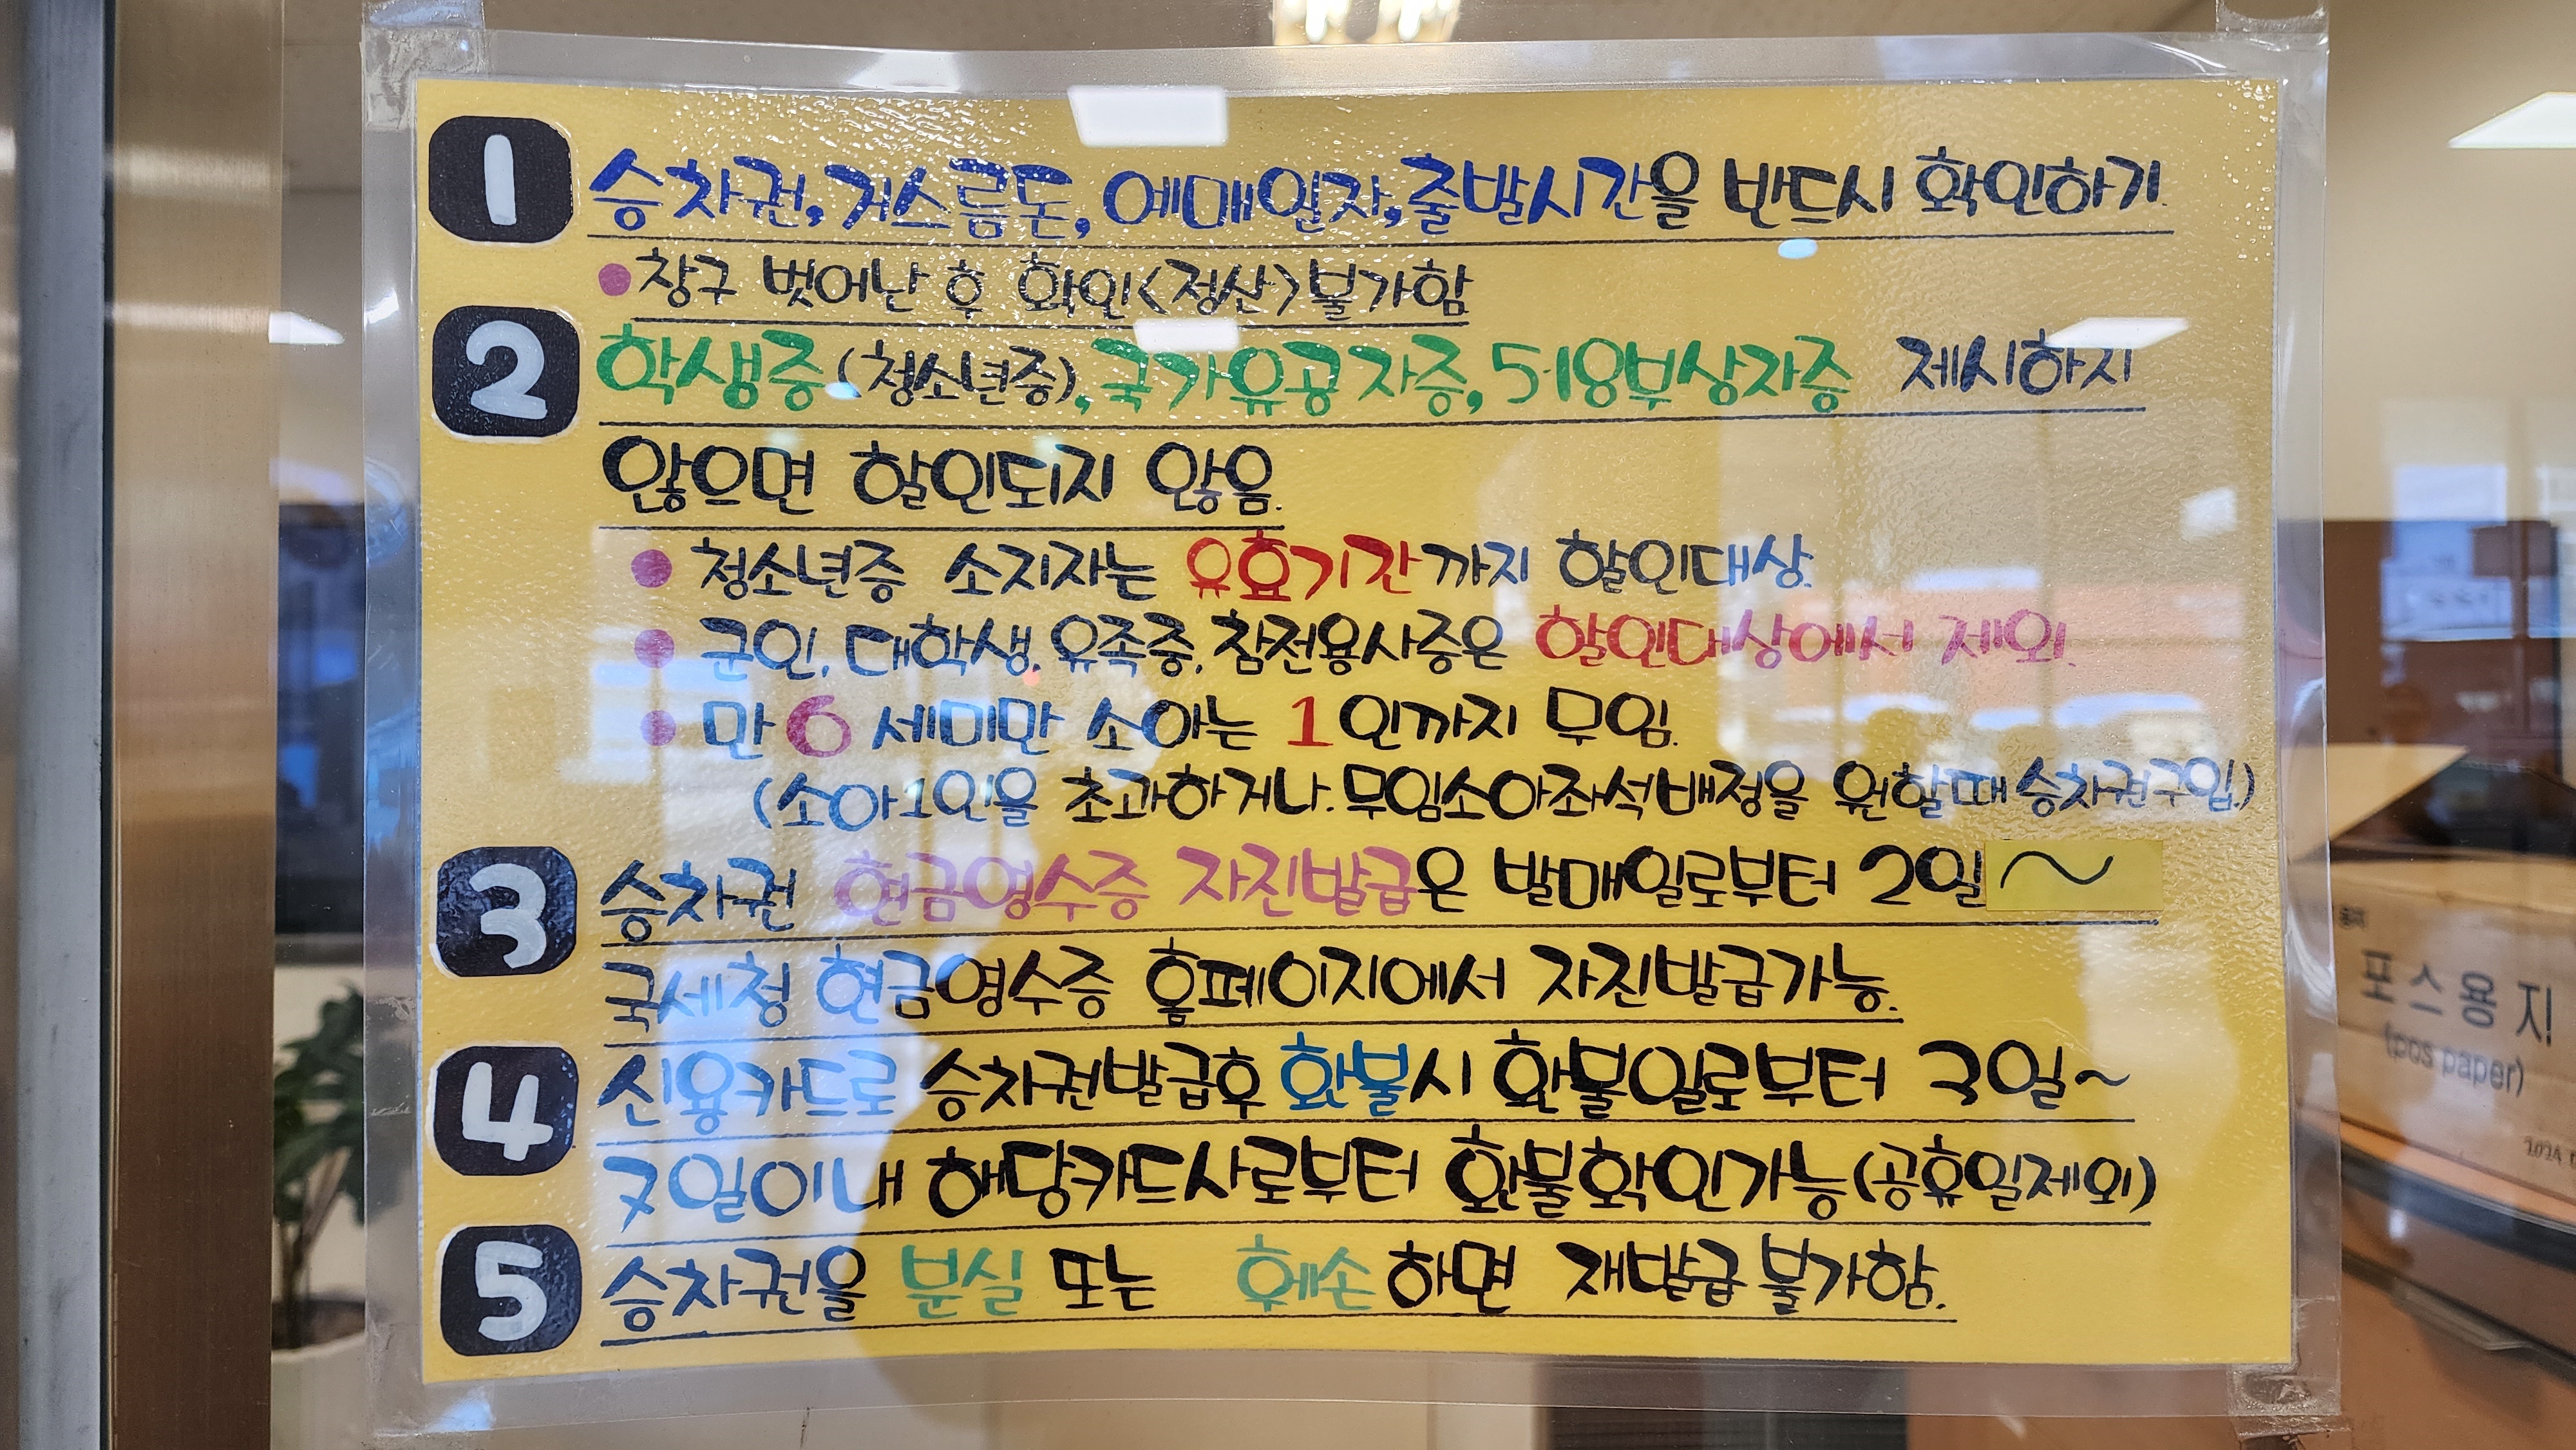 1 승차권, 거스름돈, 예매일자, 출발시간을 반드시 확인하기.
●창구 벗어난 후 확인<정산>불가함
2 학생증(청소년증), 국가유공자증, 5·18부상자증 제시하지
않으면 할인되지 않음.
● 청소년증 소지자는 유효기간까지 할인대상.
● 군인, 대학생, 유족증, 참전용사증은 할인대상에서 제외.
● 만 6 세미만 소아는 1인까지 무임.
(소아1인을 초과하거나, 무임소아좌석배정을 원할때 승차권구입.)
3 승차권 현금영수증 자진발급은 발매일로부터 2일~
국세청 현금영수증 홈페이지에서 자진발급가능.
4 신용카드로 승차권발급후 환불시 환불일로부터 3일~
7일이내 해당카드사로부터 환불확인가능(공휴일제외)
5 승차권을 분실 또는 훼손하면 재발급 불가함.
포스용지
(pos paper)